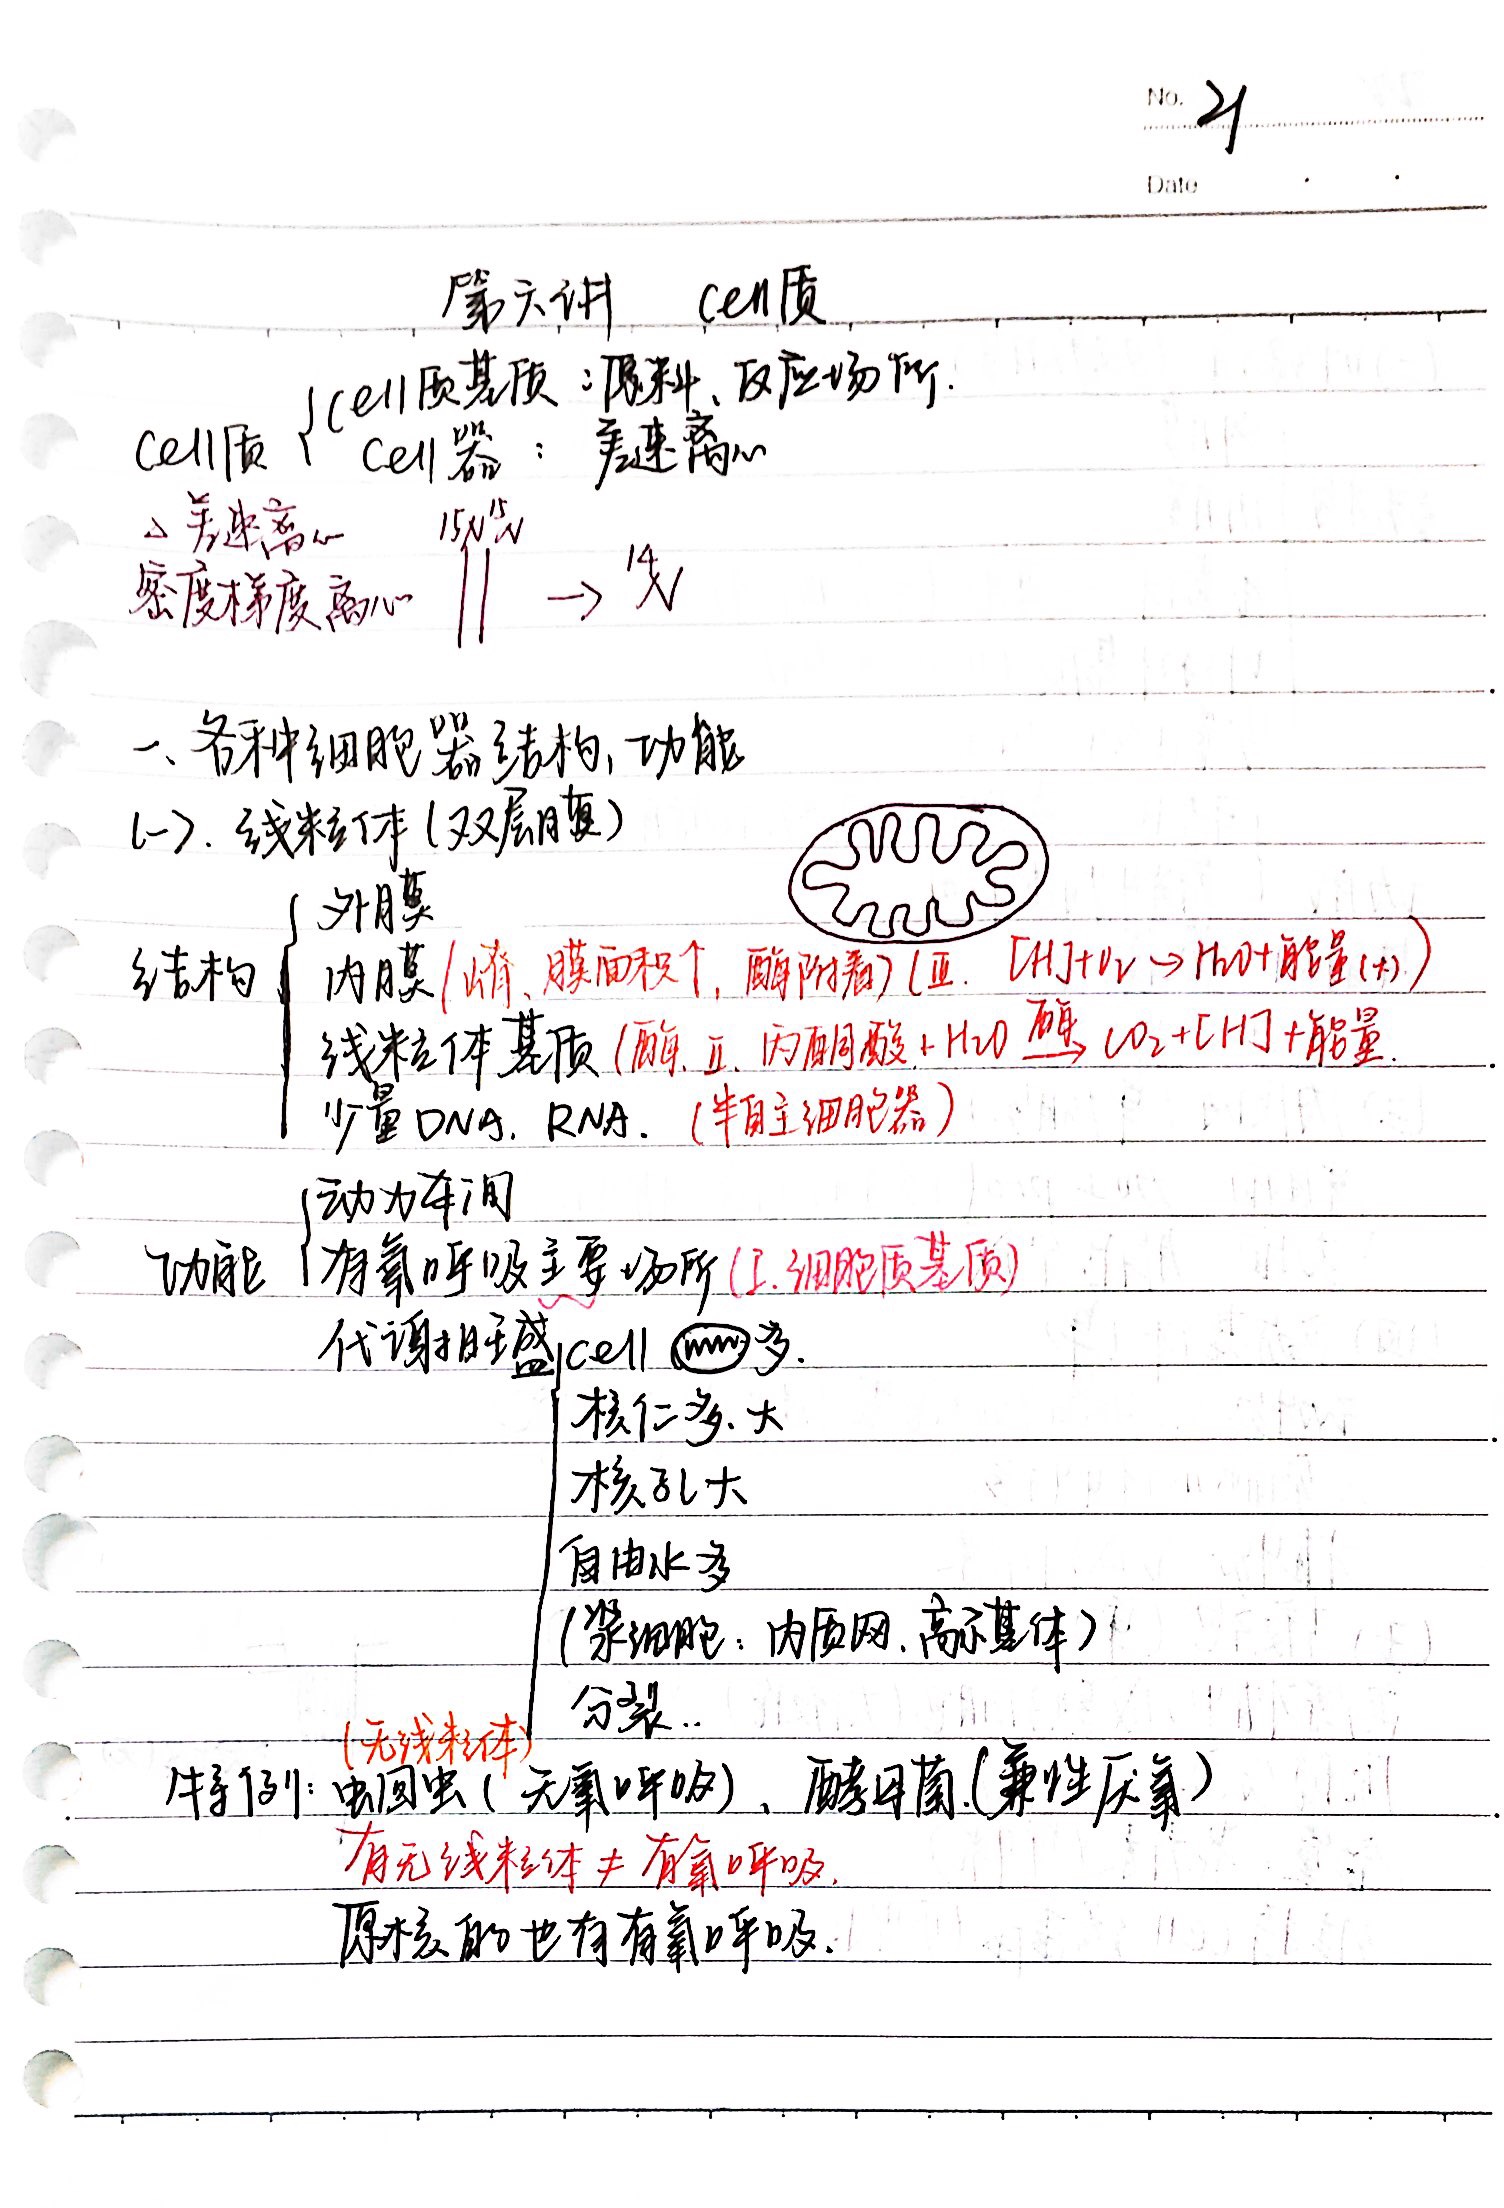 No. 21
Date
第六讲 cell质
cell质 { cell质基质：原料、反应场所.
cell器：差速离心
△ 差速离心 15N 15N
密度梯度离心 || → 14N
一、各种细胞器结构，功能
(一). 线粒体(双层膜)
结构 { 外膜
内膜(嵴、膜面积↑，酶附着)(Ⅲ. [H]+O₂→H₂O+能量(大))
线粒体基质(酶. Ⅱ. 丙酮酸+H₂O 酶→ CO₂+[H]+能量.
少量DNA. RNA. (半自主细胞器)
功能 { 动力车间
有氧呼吸主要场所(Ⅰ. 细胞质基质)
代谢旺盛 cell 多.
核仁多. 大
核孔大
自由水多
(浆细胞：内质网. 高尔基体)
分裂..
(无线粒体)
特例：蛔虫(无氧呼吸)、酵母菌.(兼性厌氧)
有无线粒体≠有氧呼吸.
原核的也有有氧呼吸.